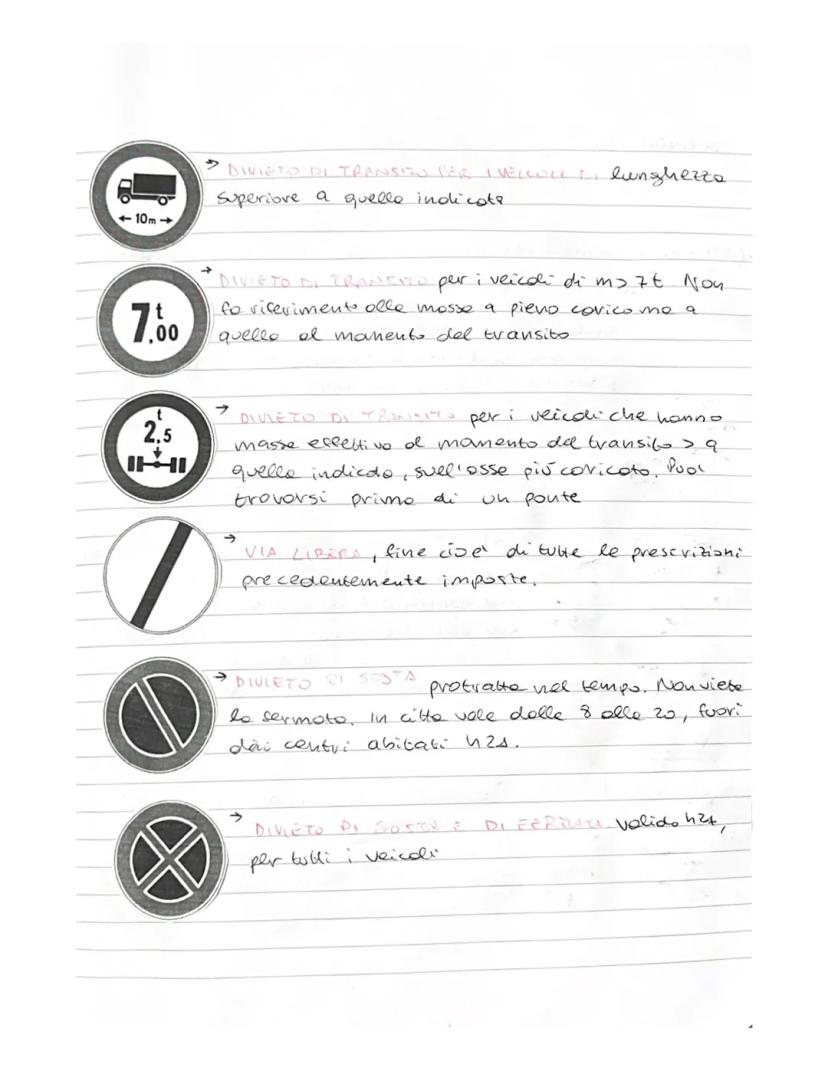 ← 10m →
→ DIVIETO DI TRANSITO PER I VEICOLI DI lunghezza
superiore a quella indicata
7.00 t
→ DIVIETO DI TRANSITO per i veicoli di m > 7t Non
fa riferimento alla massa a pieno carico ma a
quella al momento del transito
t
2,5
→ DIVIETO DI TRANSITO per i veicoli che hanno
massa effettiva al momento del transito > a
quella indicata, sull'asse più caricato. Puoi
trovarsi prima di un ponte
→ VIA LIBERA, fine cioè di tutte le prescrizioni
precedentemente imposte.
→ DIVIETO DI SOSTA protratta nel tempo. Non vieta
la fermata. In città vale dalle 8 alle 20, fuori
dai centri abitati h24.
→ DIVIETO DI SOSTA E DI FERMATA valido h24,
per tutti i veicoli